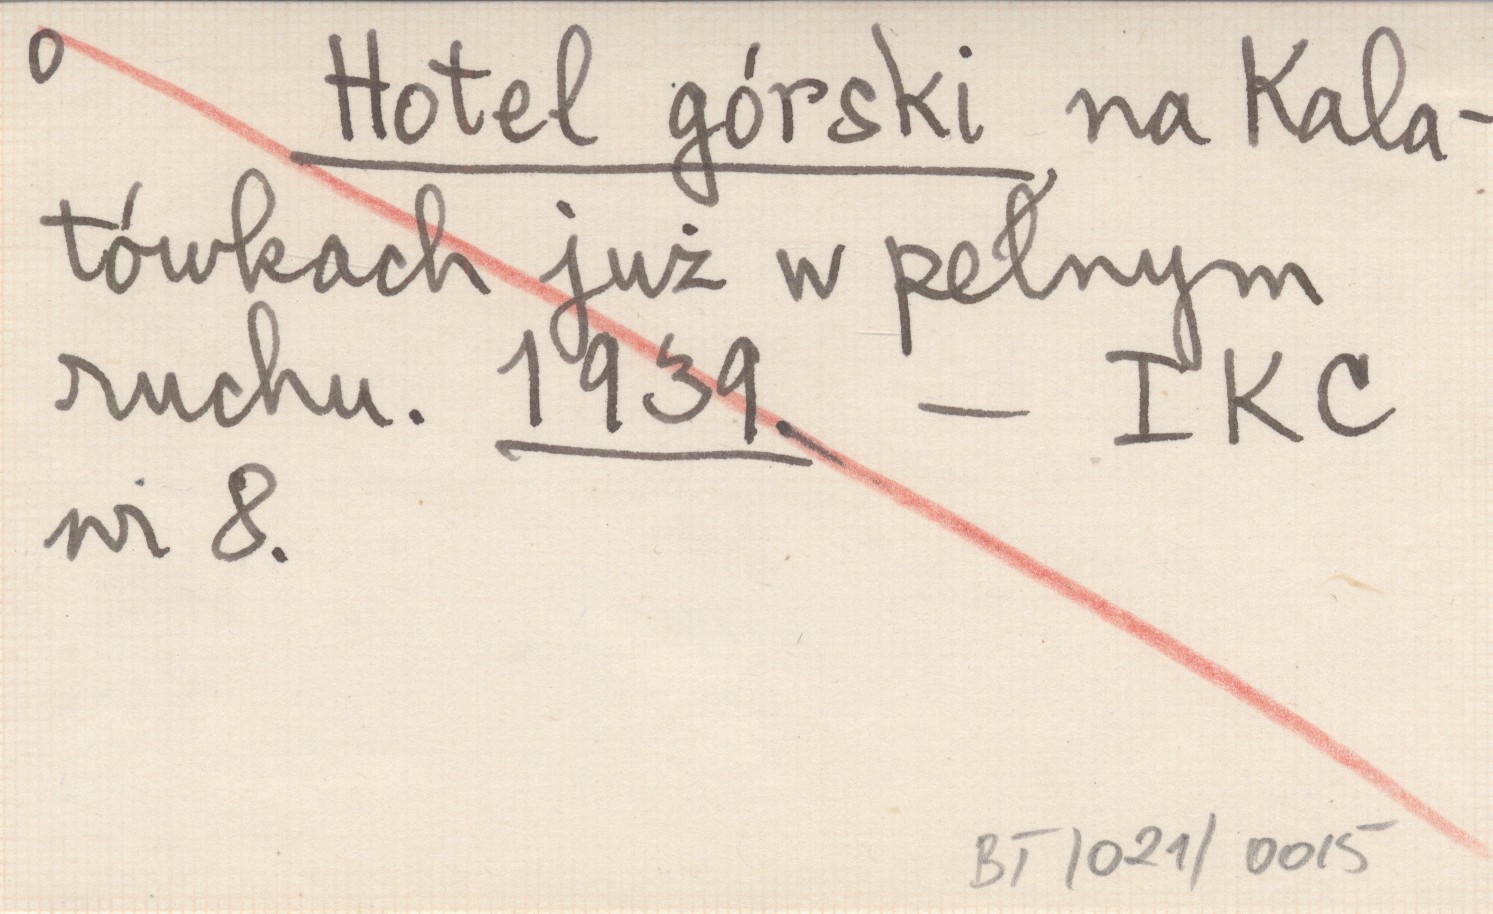 o Hotel górski na Kala-
tówkach już w pełnym
ruchu. 1939. — IKC
nr 8.
BT/021/0015